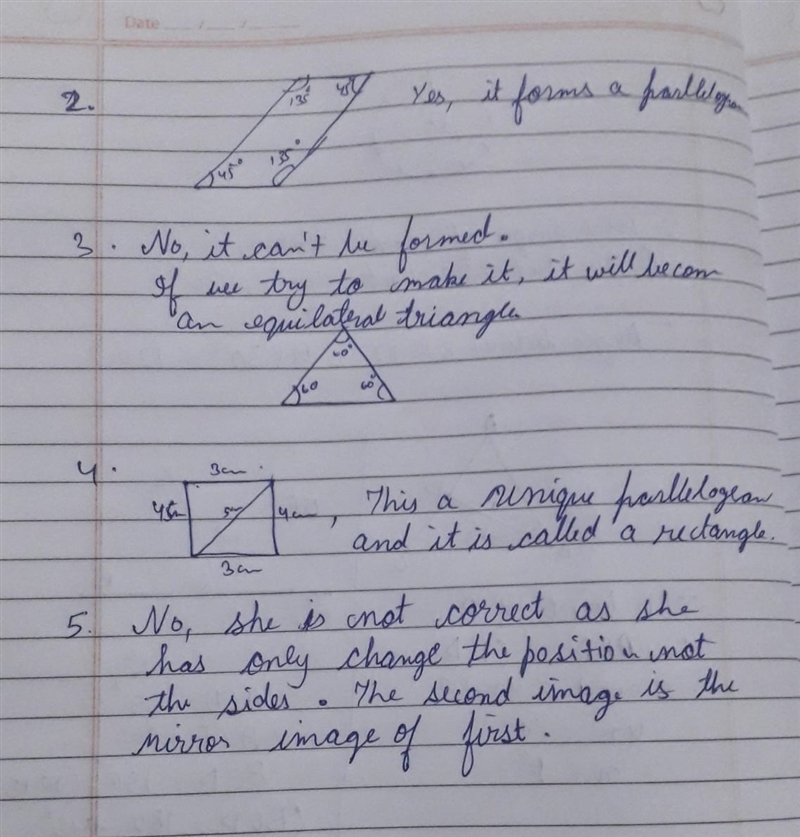 Date ___/___/___
2. 135° 45° Yes, it forms a parllelogram
45° 135°
3. No, it can't be formed.
If we try to make it, it will becom
an equilateral triangle
60°
60 60°
4. 3cm
5cm 4cm, This a unique parllelogram
3cm and it is called a rectangle.
5. No, she is not correct as she
has only change the position not
the sides. The second image is the
mirror image of first.